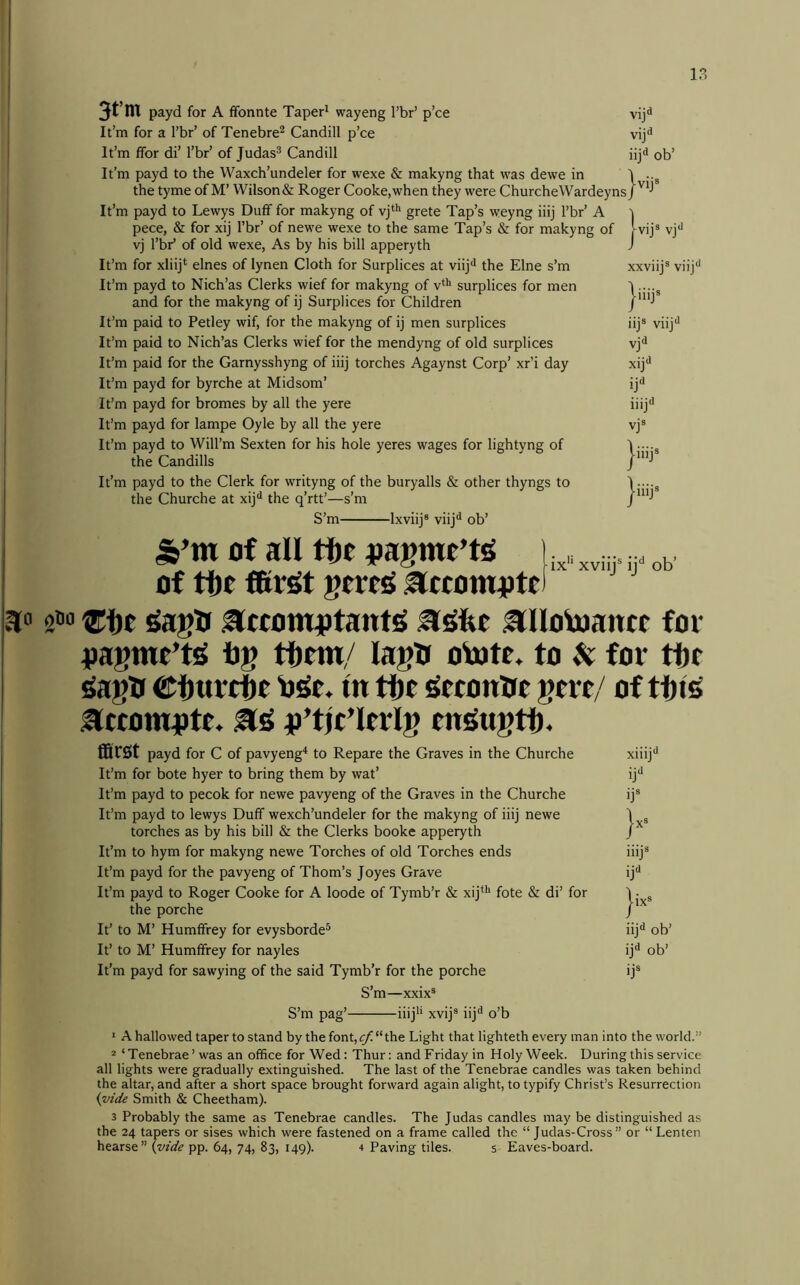 13
It'm payd for A ffonnte Taper¹ wayeng l'br' p'ce vijᵈ
It'm for a l'br' of Tenebre² Candill p'ce vijᵈ
It'm ffor di' l'br' of Judas³ Candill iijᵈ ob'
It'm payd to the Waxch'undeler for wexe & makyng that was dewe in
the tyme of M' Wilson & Roger Cooke, when they were ChurcheWardeyns } vijˢ
It'm payd to Lewys Duff for makyng of vjᵗʰ grete Tap's weyng iiij l'br' A
pece, & for xij l'br' of newe wexe to the same Tap's & for makyng of } vijˢ vjᵈ
vj l'br' of old wexe, As by his bill apperyth
It'm for xliijᵗ elnes of lynen Cloth for Surplices at viijᵈ the Elne s'm xxviijˢ viijᵈ
It'm payd to Nich'as Clerks wief for makyng of vᵗʰ surplices for men
and for the makyng of ij Surplices for Children } iiijˢ
It'm paid to Petley wif, for the makyng of ij men surplices iijˢ viijᵈ
It'm paid to Nich'as Clerks wief for the mendyng of old surplices vjᵈ
It'm paid for the Garnysshyng of iiij torches Agaynst Corp' xr'i day xijᵈ
It'm payd for byrche at Midsom' ijᵈ
It'm payd for bromes by all the yere iiijᵈ
It'm payd for lampe Oyle by all the yere vjˢ
It'm payd to Will'm Sexten for his hole yeres wages for lightyng of
the Candills } iiijˢ
It'm payd to the Clerk for writyng of the buryalls & other thyngs to
the Churche at xijᵈ the q'rtt'—s'm } iiijˢ
S'm——lxviijˢ viijᵈ ob'
S'm of all the payme'ts
of the ffirst yeres Accompte } ixˡⁱ xviijˢ ijᵈ ob'
Aº 2ᵈᵒ The sayd Accomptants Aske Allowance for
payme'ts by them/ layd owte. to & for the
sayd Churche vse. in the seconde yere/ of this
Accompte. As p'tjc'lerly ensuyth.
ffirst payd for C of pavyeng⁴ to Repare the Graves in the Churche xiiijᵈ
It'm for bote hyer to bring them by wat' ijᵈ
It'm payd to pecok for newe pavyeng of the Graves in the Churche ijˢ
It'm payd to lewys Duff wexch'undeler for the makyng of iiij newe
torches as by his bill & the Clerks booke apperyth } xˢ
It'm to hym for makyng newe Torches of old Torches ends iiijˢ
It'm payd for the pavyeng of Thom's Joyes Grave ijᵈ
It'm payd to Roger Cooke for A loode of Tymb'r & xijᵗʰ fote & di' for
the porche } ixˢ
It' to M' Humffrey for evysborde⁵ iijᵈ ob'
It' to M' Humffrey for nayles ijᵈ ob'
It'm payd for sawying of the said Tymb'r for the porche ijˢ
S'm—xxixˢ
S'm pag'——iiijˡⁱ xvijˢ iijᵈ o'b
¹ A hallowed taper to stand by the font, cf. "the Light that lighteth every man into the world."
² 'Tenebrae' was an office for Wed: Thur: and Friday in Holy Week. During this service
all lights were gradually extinguished. The last of the Tenebrae candles was taken behind
the altar, and after a short space brought forward again alight, to typify Christ's Resurrection
(vide Smith & Cheetham).
3 Probably the same as Tenebrae candles. The Judas candles may be distinguished as
the 24 tapers or sises which were fastened on a frame called the "Judas-Cross" or "Lenten
hearse" (vide pp. 64, 74, 83, 149). 4 Paving tiles. 5 Eaves-board.